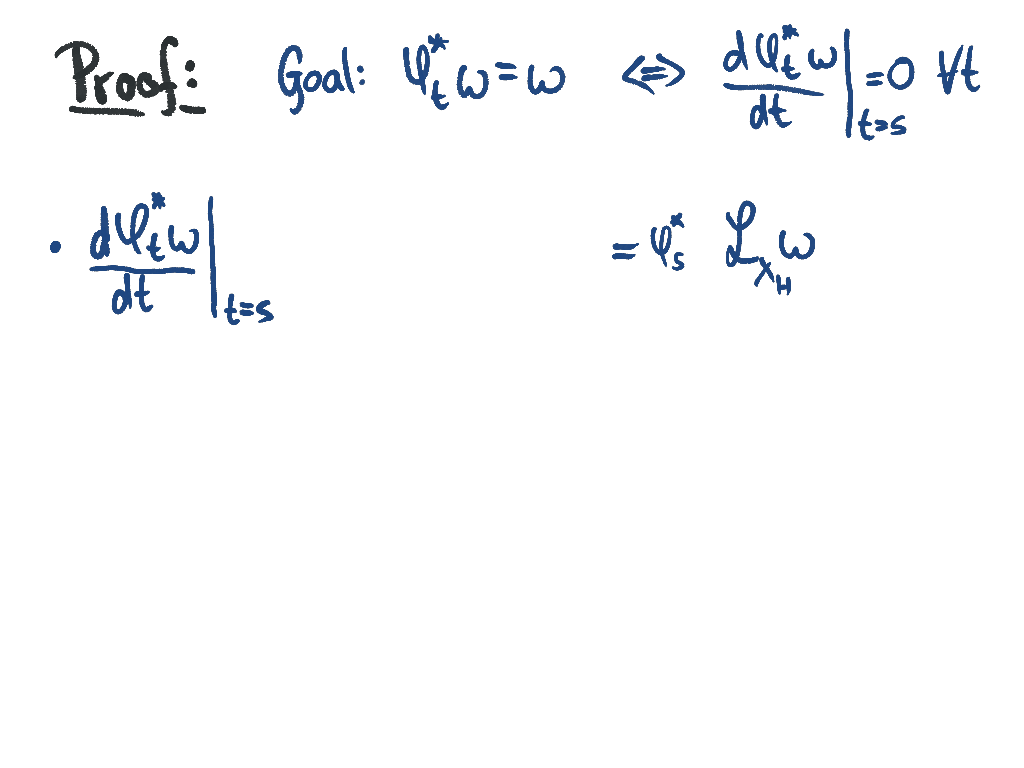 Proof: Goal: φ_t^* ω = ω <=> dφ_t^* ω / dt |_{t=s} = 0 ∀t
• dφ_t^* ω / dt |_{t=s} = φ_s^* ℒ_{X_H} ω